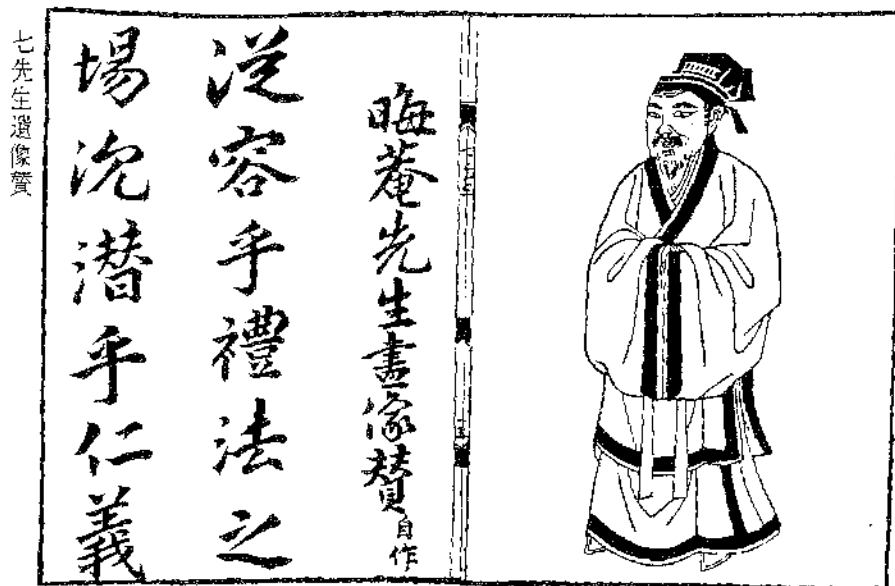 晦菴先生畫像贊自作
從容乎禮法之
場沉潛乎仁義
七先生遺像贊